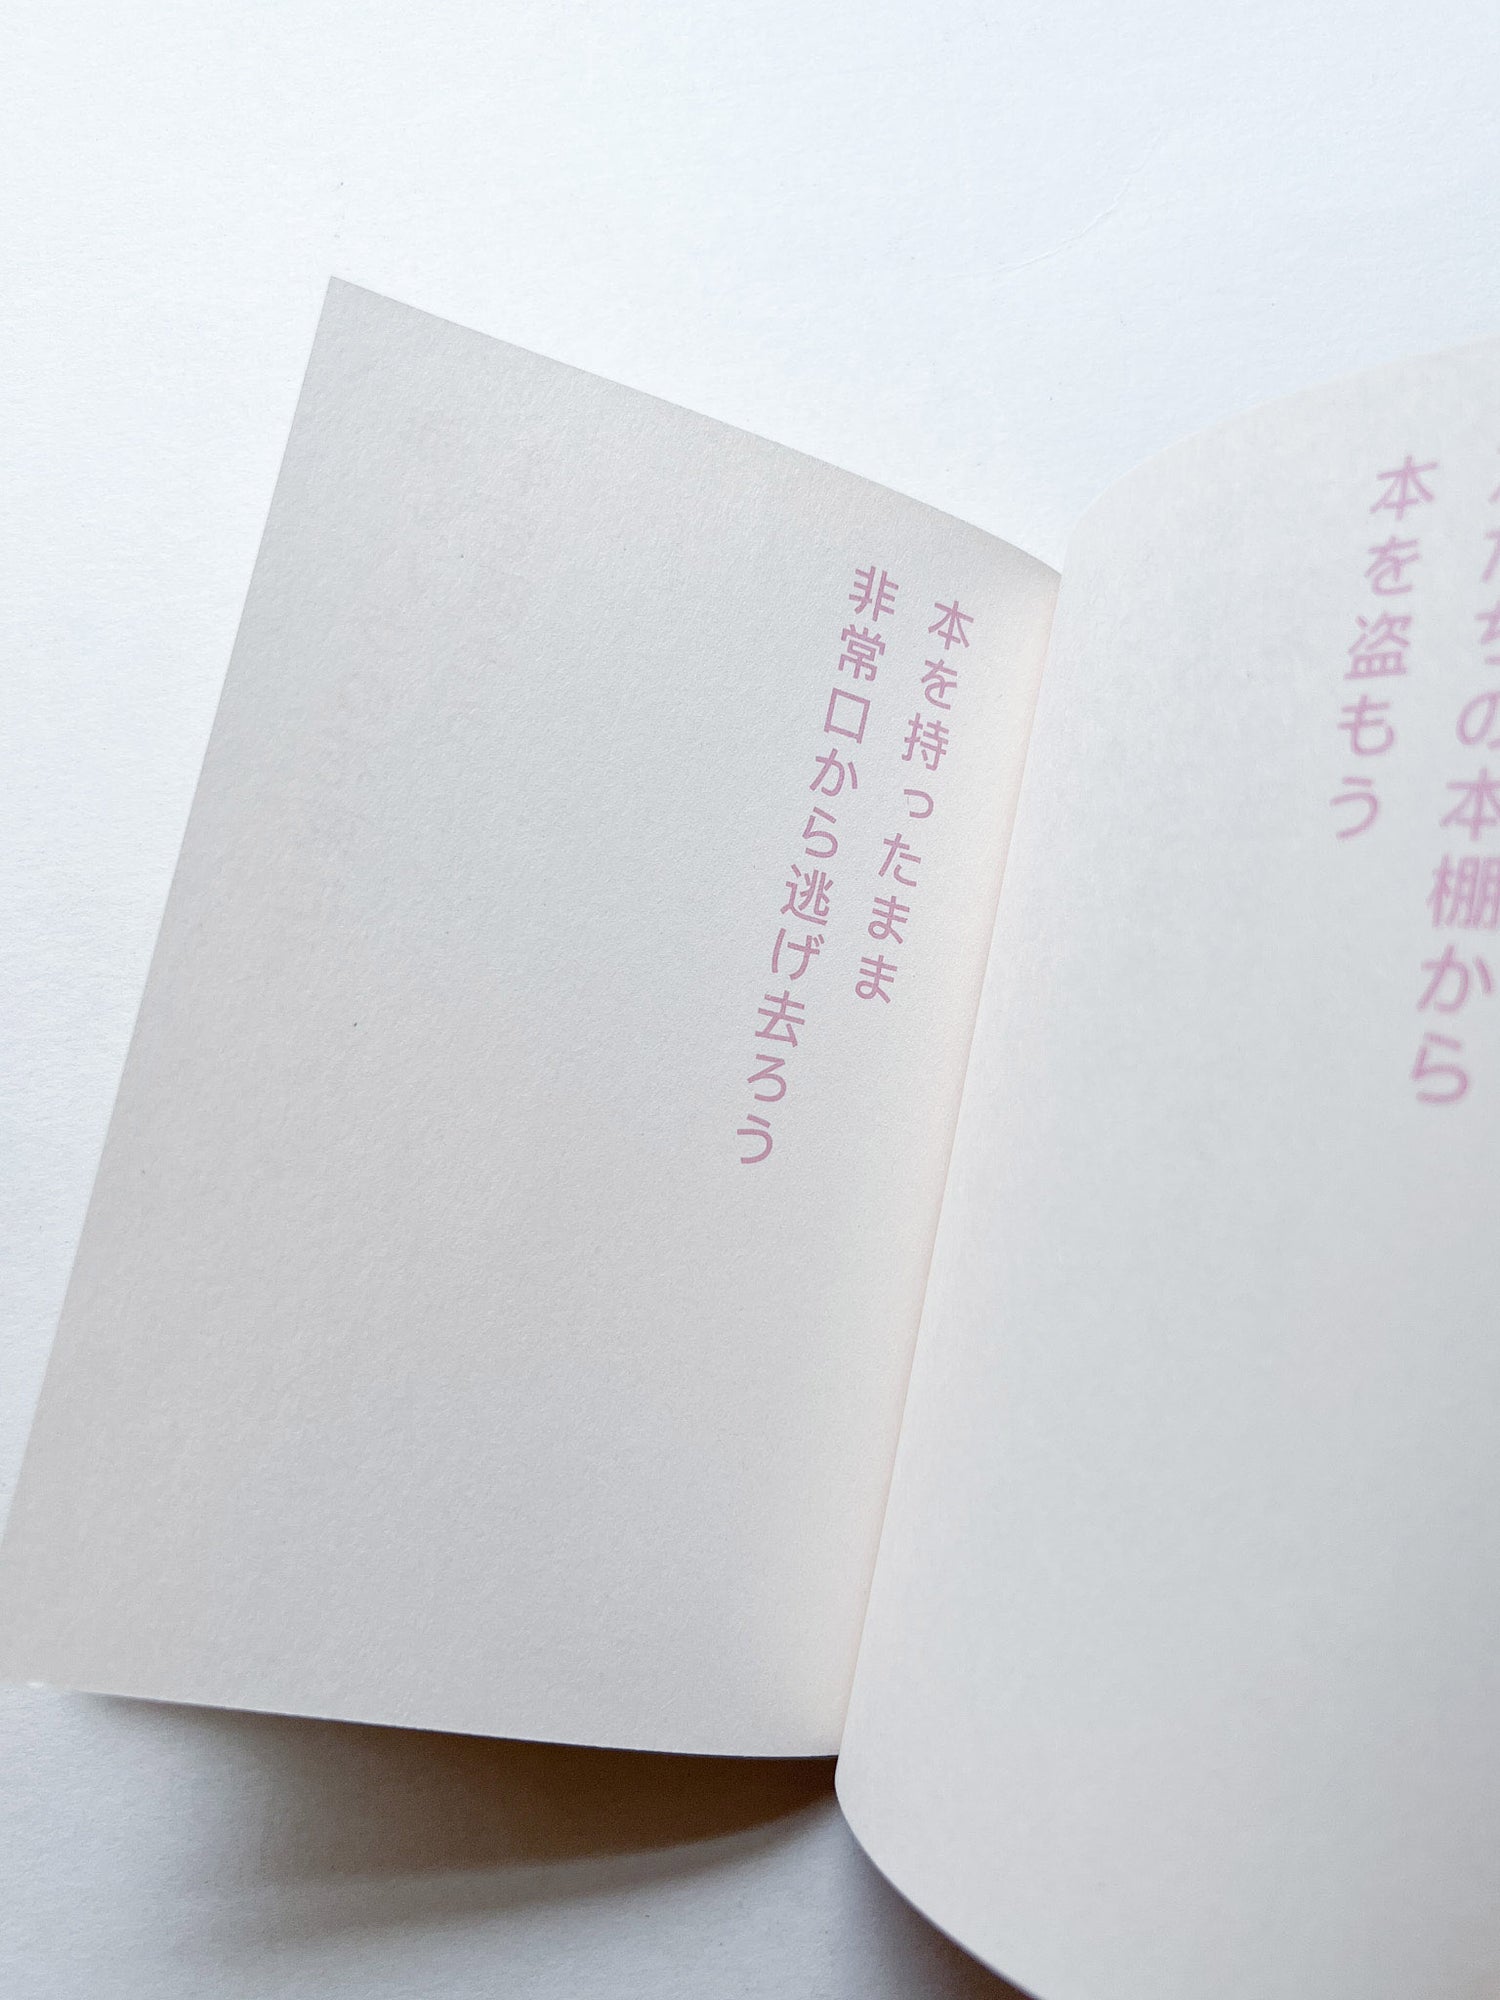 たちの本棚から
本を盗もう
本を持ったまま
非常口から逃げ去ろう